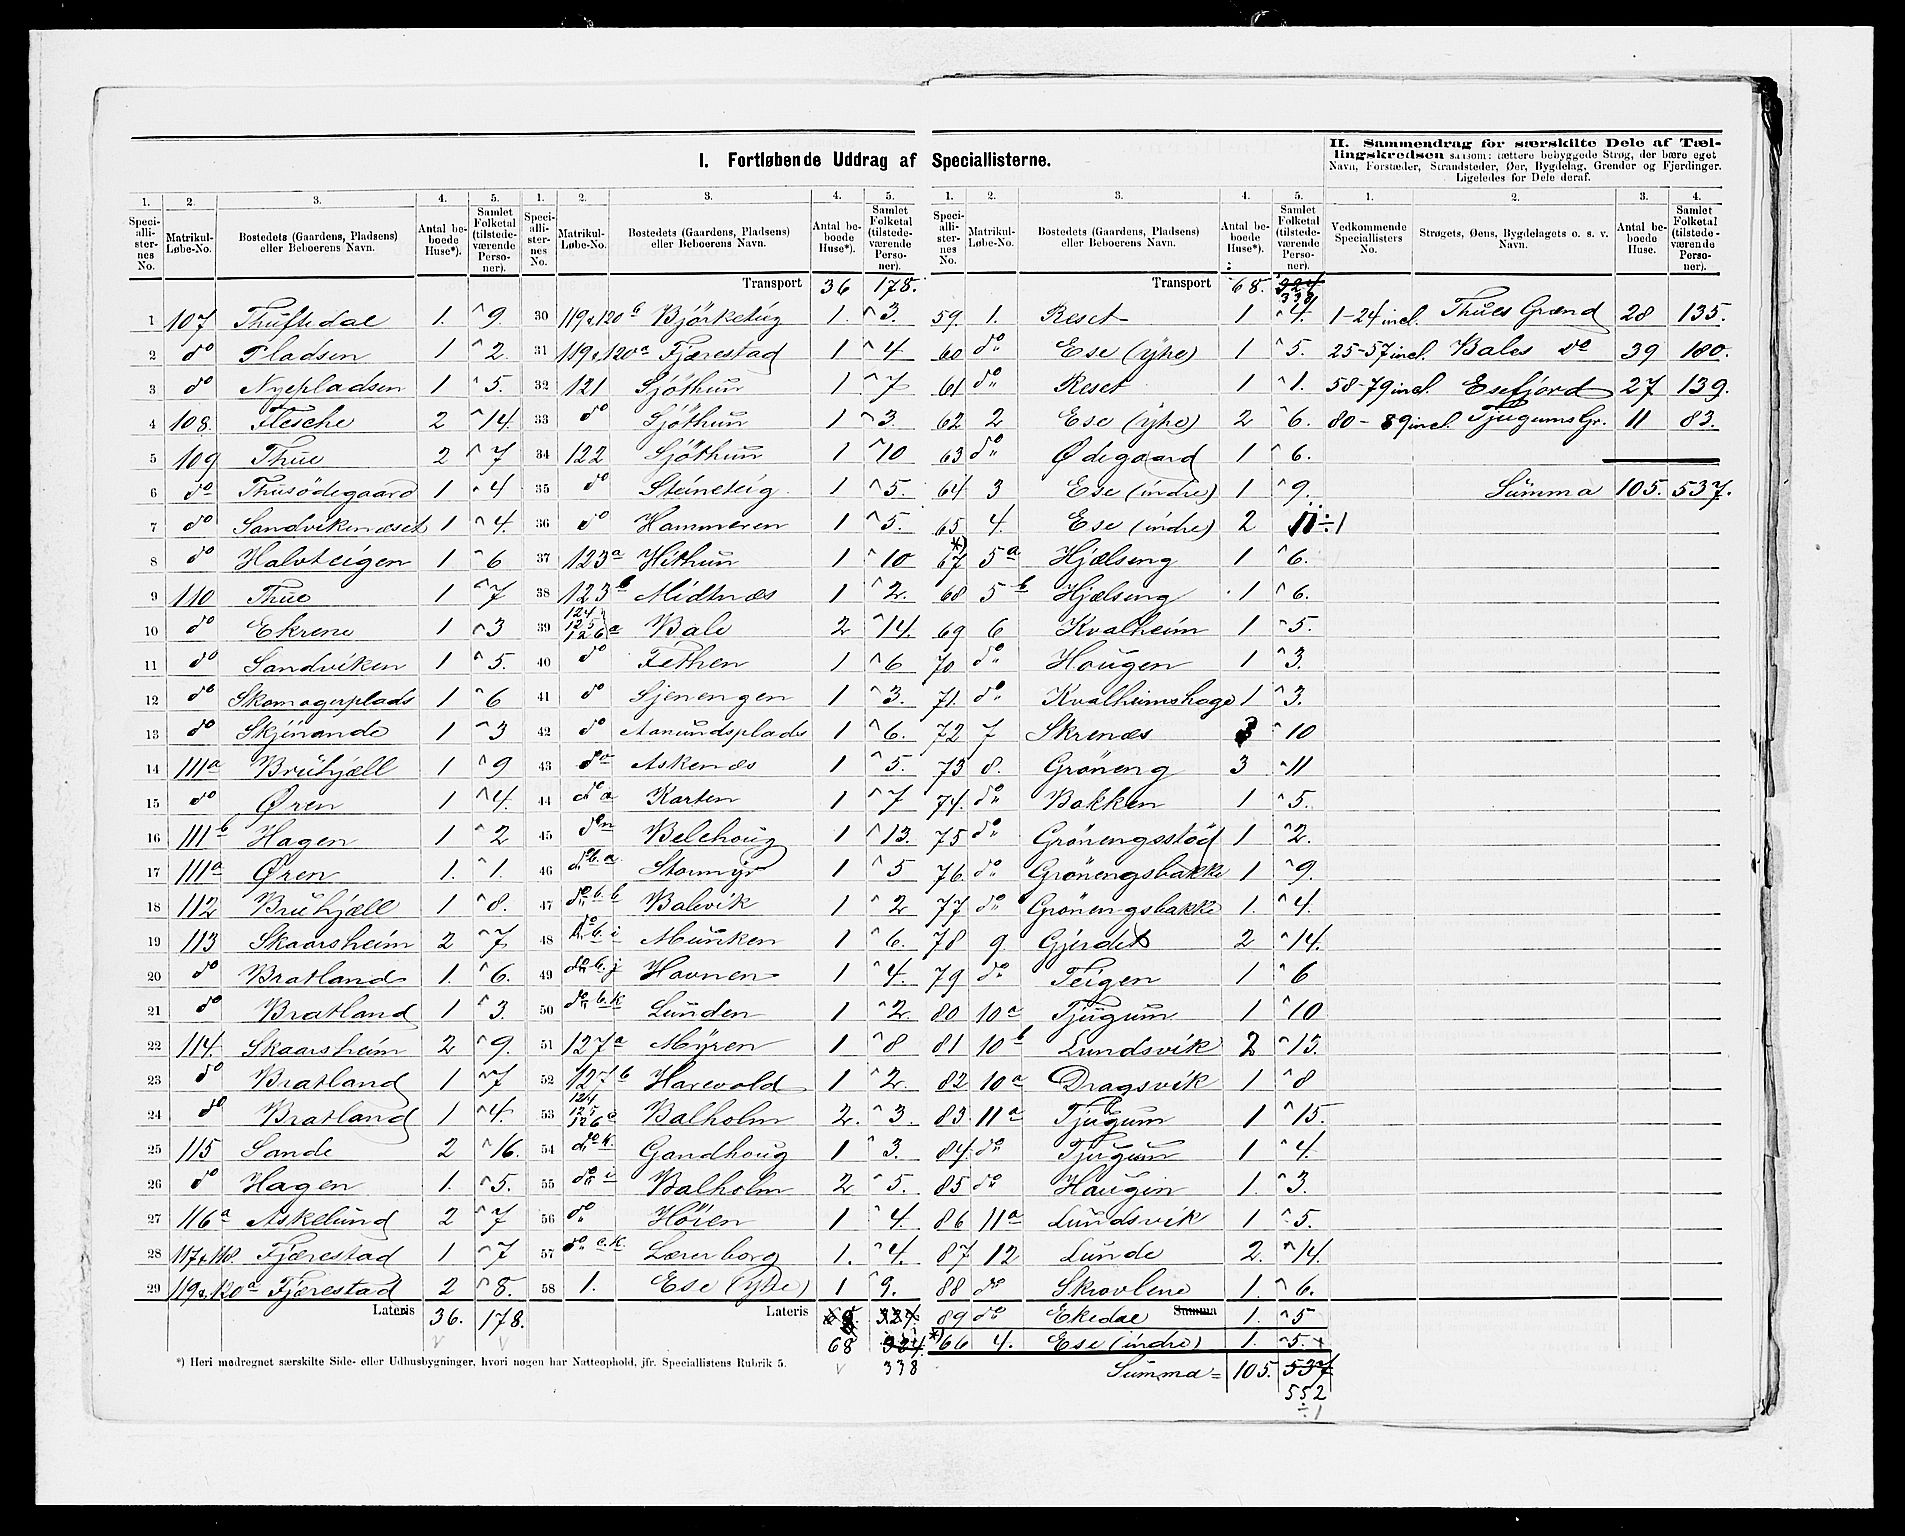 I. Fortløbende Uddrag af Speciallisterne.
II. Sammendrag for særskilte Dele af Tællingskredsen saasom: tættere bebyggede Strøg, der bære eget Navn, Forstæder, Strandsteder, Øer, Bygdelag, Grender og Fjerdinger. Ligeledes for Dele deraf.
1. 2. 3. 4. 5.
Speciallisternes No. Matrikul-Løbe-No. Bostedets (Gaardens, Pladsens) eller Beboerens Navn. Antal beboede Huse*). Samlet Folketal (tilstedeværende Personer).
1 107 Thuftedal 1. 9.
2 do Pladsen 1 2.
3 do Nyepladsen 1 5.
4 108. Flesche 2 14.
5 109 Thue 2 7
6 do Thusödegaard 1 4
7 do Sandvikenæset 1 4.
8 do Halvteigen 1 6
9 110 Thue 1 7
10 do Ekrene 1 3
11 do Sandviken 1 5.
12 do Skomagerplads 1 6
13 do Skjinande 1 3
14 111a Bruhjæll 1 9
15 do Øren 1 4.
16 111b Hagen 1 2
17 111a Øren 1. 1.
18 112 Bruhjæll 1 8.
19 113 Skaarsheim 2 7
20 do Bratland 1. 6.
21 do Bratland 1 3.
22 114. Skaarsheim 2 9.
23 do Bratland 1 7
24 do Bratland 1 4.
25 115 Sande 2 16.
26 do Hagen 1. 5.
27 116a Askelund 2 7
28 117&118. Fjærestad 1 7
29 119&120a Fjærestad 2 8.
Lateris 36. 178.
*) Heri medregnet særskilte Side- eller Udhusbygninger, hvori nogen har Natteophold, jfr. Speciallistens Rubrik 5.
1. 2. 3. 4. 5.
Speciallisternes No. Matrikul-Løbe-No. Bostedets (Gaardens, Pladsens) eller Beboerens Navn. Antal beboede Huse*). Samlet Folketal (tilstedeværende Personer).
Transport 36 178.
30 119&120b Björketeig 1. 3.
31 119&120a Fjærestad 1 4
32 121 Sjöthun 1 7
33 do Sjöthun 1 3.
34 122 Sjöthun 1 10
35 do Steineteig 1 5.
36 do Hammeren 1 5.
37 123a Hithun 1 10
38 123b Midtnæs 1 2.
39 124 125 126a Bale 2 14.
40 do Fethen 1 6
41 do Sjenengen 1 3.
42 do Aamundsplads 1 6.
43 do Askenæs 1 5.
44 do a Karten 1 7
45 do Belehoug 1 13.
46 do b.a. Stormyr 1 5
47 do b. b Balevik 1 2
48 do b. i Munken 1 6.
49 do b. j Havnen 1 4.
50 do b. k Lunden 1 2.
51 127a Myren 1 8
52 127b Harevold 1 2.
53 124 125 126c Balholm 2. 3.
54 do k. Gandhoug 1 3.
55 do i Balholm 2 5.
56 do Höien 1 4.
57 do c.k. Lærerborg 1. 4.
58 1. Ese (ytre) 1 9.
Lateris 324
68 338
1. 2. 3. 4. 5.
Speciallisternes No. Matrikul-Løbe-No. Bostedets (Gaardens, Pladsens) eller Beboerens Navn. Antal beboede Huse*). Samlet Folketal (tilstedeværende Personer).
Transport 68. 324 338
59. 1. Reset 1 4.
60 do Ese (ytre) 1 5.
61 do Reset 1 1.
62 2 Ese (ytre) 2 6.
63 do Ødegaard 1 6.
64 3 Ese (indre) 1 9.
65 4. Ese (indre) 2 11 ÷1
*)
67 5a Hjælseng 1 6.
68 5b Hjælseng 1 6.
69 6 Kvalheim 1 5.
70 do Hougen 1 3.
71. do Kvalheimshage 1 3.
72 7 Skrenæs 3 10
73 8. Gröneng 3 11
74. do Bakken 1 5.
75 do Grönengsstöd 1 2.
76 do Grönengsbakke 1 9.
77 do Grönengsbakke 1. 4.
78 9 Gjerdet 2 14.
79 do Teigen 1 6
80 10a Tjugum 1 10
81 10b Lundsvik 2 13.
82 10a Dragsvik 1 8
83 11a Tjugum 1 15.
84. do Tjugum 1 4.
85 do Haugen 1. 3.
86 11a Lundsvik 1 5.
87 12 Lunde 2. 14.
88 do Skrovlene 1. 6.
89 do Ekedal Summa 1. 5
*) 66 4. Ese (indre) 1. 5.
Summa = 105. 537
552
÷1
1. 2. 3. 4.
Vedkommende Speciallisters No. Strøgets, Øens, Bygdelagets o. s. v. Navn. Antal beboede Huse. Samlet Folketal (tilstedeværende Personer).
1-24 incl. Thues Grænd 28 135.
25-57 incl. Bales do 39 180.
58-79 incl. Esefjord 27 139.
80-89 incl. Tjugums Gr. 11 83.
Summa 105. 537.